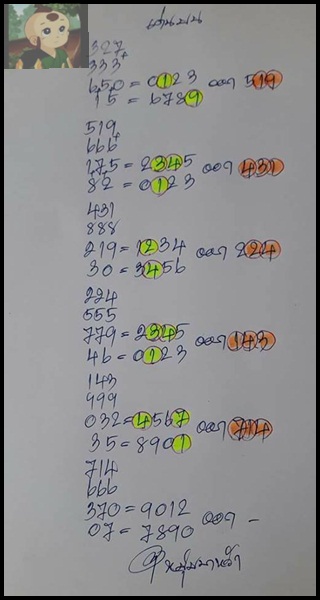 เด่นบน
327
333+
650 = 0123 ออก 519
15 = 6789
519
666+
175 = 2345 ออก 431
82 = 0123
431
888
219 = 1234 ออก 224
30 = 3456
224
555
779 = 2345 ออก 143
46 = 0123
143
999
032 = 4567 ออก 714
35 = 8901
714
666
370 = 9012 ออก -
07 = 7890